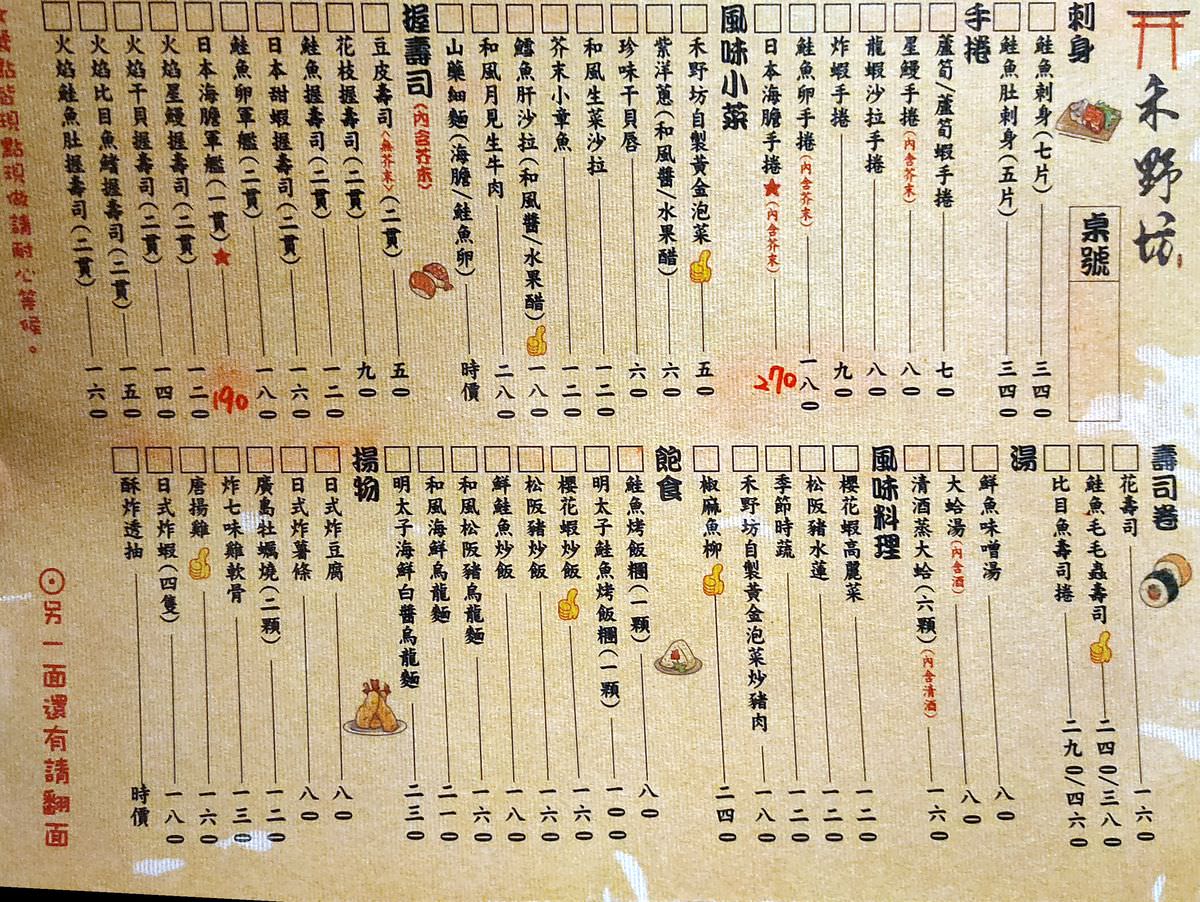 禾野坊
桌號
刺身
鮭魚刺身(七片) 三四0
鮭魚肚刺身(五片) 三四0
手捲
蘆筍/蘆筍蝦手捲 七0
星鰻手捲(內含芥末) 八0
龍蝦沙拉手捲 八0
炸蝦手捲 九0
鮭魚卵手捲(內含芥末) 一八0
日本海膽手捲★(內含芥末) 270
風味小菜
禾野坊自製黃金泡菜 五0
紫洋蔥(和風醬/水果醋) 六0
珍味干貝唇 六0
和風生菜沙拉 一二0
芥末小章魚 一二0
鱈魚肝沙拉(和風醬/水果醋) 一八0
和風月見生牛肉 二八0
山藥細麵(海膽/鮭魚卵) 時價
握壽司(內含芥末)
豆皮壽司<無芥末>(二貫) 五0
花枝握壽司(二貫) 九0
鮭魚握壽司(二貫) 一二0
日本甜蝦握壽司(二貫) 一六0
鮭魚卵軍艦(二貫) 一八0
日本海膽軍艦(一貫)★ 190
火焰星鰻握壽司(二貫) 一二0
火焰干貝握壽司(二貫) 一四0
火焰比目魚鰭握壽司(二貫) 一五0
火焰鮭魚肚握壽司(二貫) 一六0
點皆現點現做請耐心等候。
壽司卷
花壽司 一六0
鮭魚毛毛蟲壽司 二四0/三八0
比目魚壽司捲 二九0/四六0
湯
鮮魚味噌湯 八0
大蛤湯(內含酒) 八0
清酒蒸大蛤(六顆)(內含清酒) 一六0
風味料理
櫻花蝦高麗菜 一二0
松阪豬水蓮 一二0
季節時蔬 一二0
禾野坊自製黃金泡菜炒豬肉 一八0
椒麻魚柳 二四0
飽食
鮭魚烤飯糰(一顆) 八0
明太子鮭魚烤飯糰(一顆) 一00
櫻花蝦炒飯 一六0
松阪豬炒飯 一六0
鮮鮭魚炒飯 一八0
和風松阪豬烏龍麵 一六0
和風海鮮烏龍麵 二一0
明太子海鮮白醬烏龍麵 二三0
揚物
日式炸豆腐 八0
日式炸薯條 八0
廣島牡蠣燒(二顆) 一二0
炸七味雞軟骨 一三0
唐揚雞 一六0
日式炸蝦(四隻) 一八0
酥炸透抽 時價
⊙另一面還有請翻面